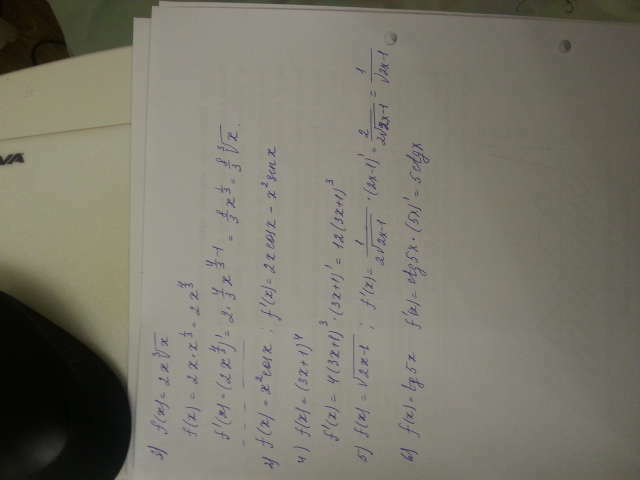 3) f(x) = 2x∛x
f(x) = 2x·x^{1/3} = 2x^{4/3}
f'(x) = (2x^{4/3})' = 2·4/3 x^{4/3-1} = 8/3 x^{1/3} = 8/3 ∛x.
2) f(x) = x²cosx ; f'(x) = 2x cosx - x² sinx
4) f(x) = (3x+1)⁴
f'(x) = 4(3x+1)³·(3x+1)' = 12(3x+1)³
5) f(x) = √(2x-1) ; f'(x) = 1/(2√(2x-1)) · (2x-1)' = 2/(2√(2x-1)) = 1/√(2x-1)
6) f(x) = tg5x f'(x) = ctg5x·(5x)' = 5ctgx
VA